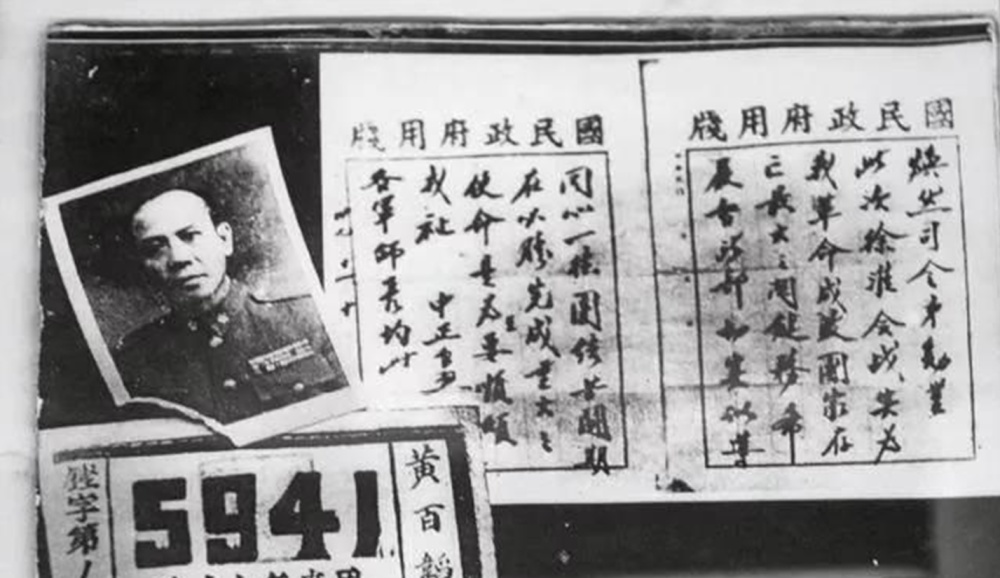 國民政府用牋
煥然司令弟勛鑒
此次徐淮會戰實為
我革命成敗國家存
亡最大之關鍵務希
嚴督所部切實訓導
國民政府用牋
同心一德團結苦鬪期
在必勝完成重大之
使命是為至要順頌
戎祉 中正手啟
各軍師長均此
黃百韜
5941
字第